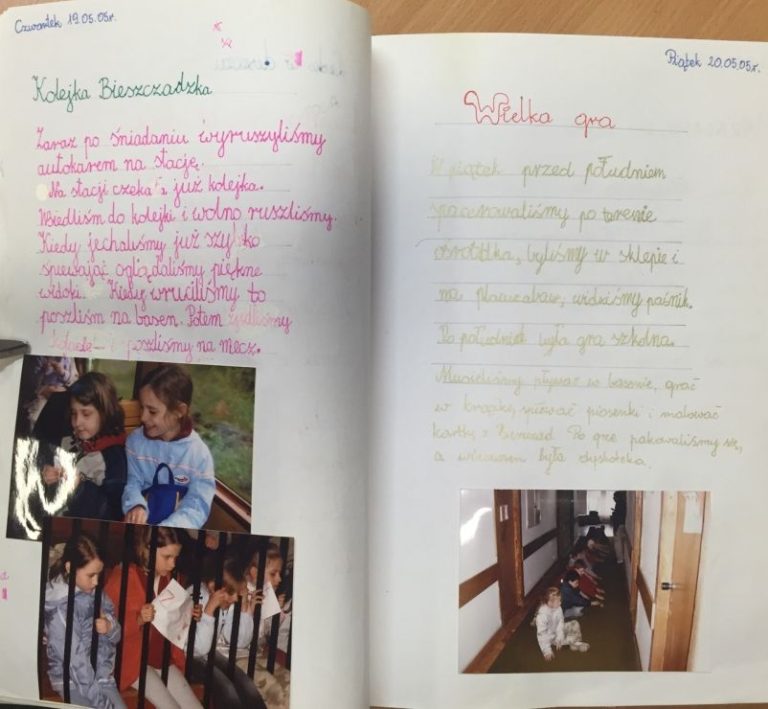 Czwartek 19.05.05r.
Kolejka Bieszczadzka
Zaraz po śniadaniu wyruszyliśmy
autokarem na stację.
Na stacji czekała już kolejka.
Wsiedliśm do kolejki i wolno ruszliśmy.
Kiedy jechaliśmy już szybko
śpiewając oglądaliśmy piękne
widoki. Kiedy wruciliśmy to
poszliśm na basen. Potem zjedliśmy
i poszliśmy na mecz.
Piątek 20.05.05r.
Wielka gra
W piątek przed południem
spacerowaliśmy po terenie
ośrotdka, byliśmy w sklepie i
na placuzabaw, widziśmy paśnik.
Po południu była gra szkolna.
Musieliśmy pływać w basenie, grać
w krążki, piosenki i malować
kartkę z Po grze pakowaliśmy się,
a wieczorem była dyskoteka.